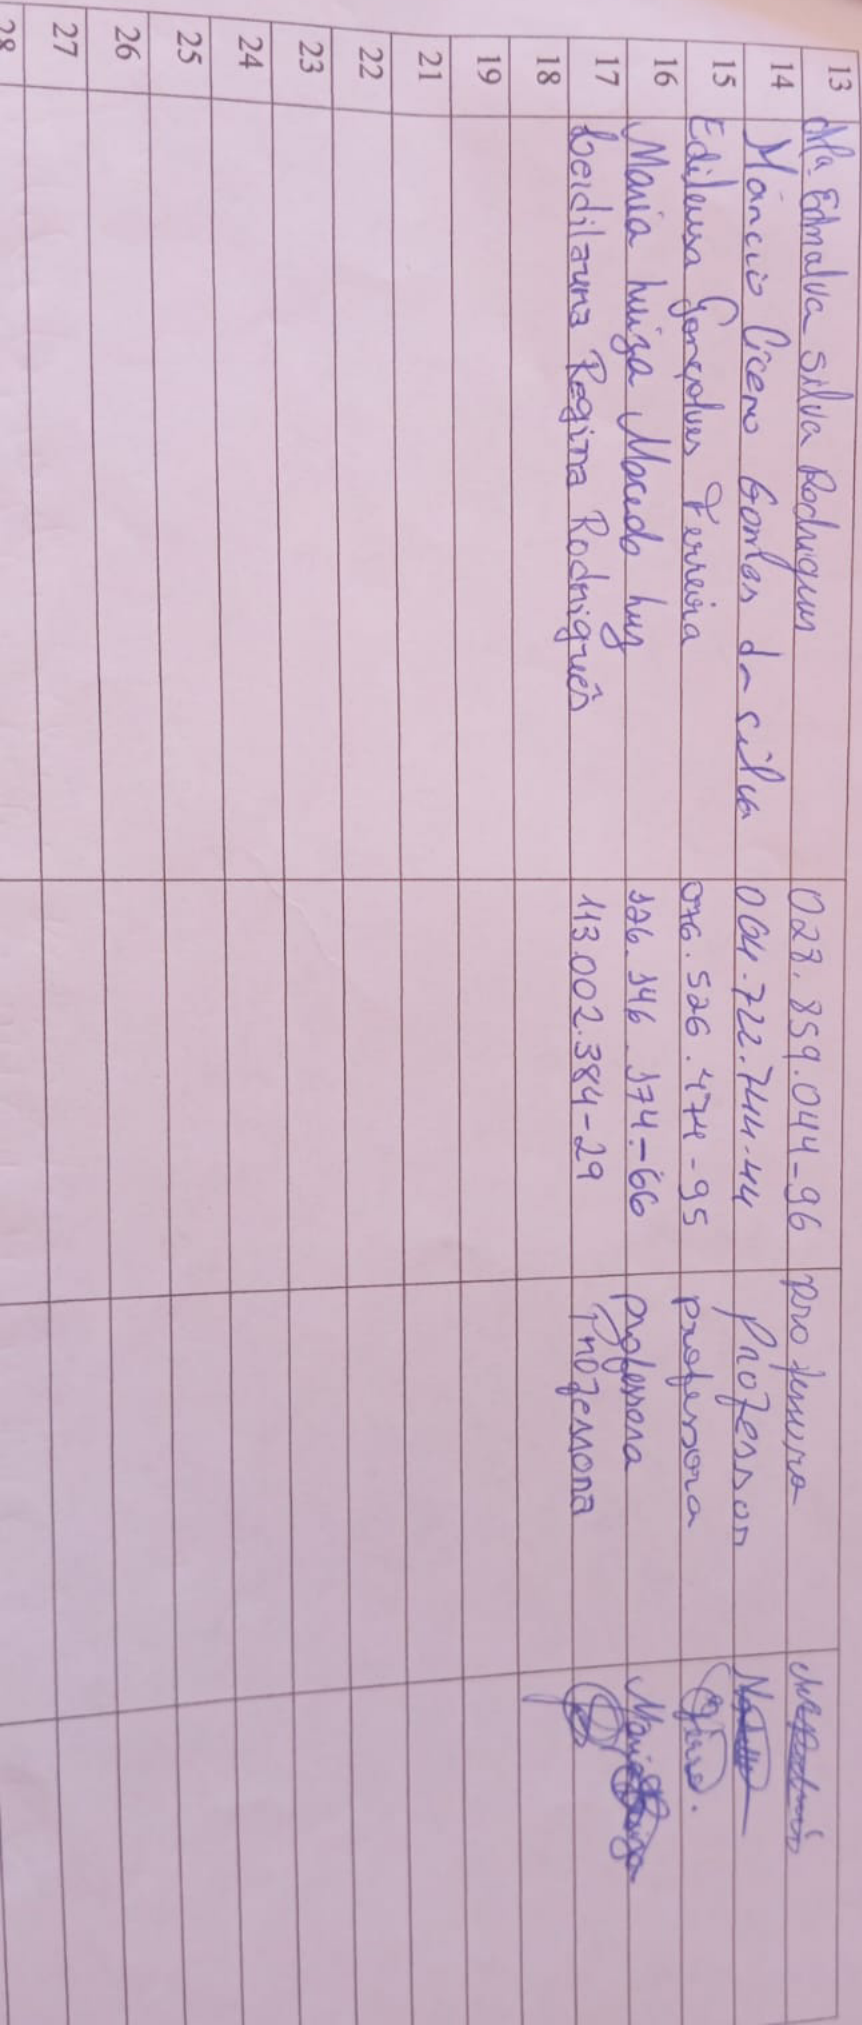 13 Mª. Ednalva Silva Rodrigues 028.859.044-96 professora
14 Márcio Cícero Gomes da Silva 064.722.744-44 Professor
15 Edileusa Gonçalves Ferreira 076.526.474-95 professora
16 Maria Luiza Macedo Luz 126.146.174-66 professora Maria Luiza
17 Leidilaura Regina Rodrigues 113.002.384-29 Professora
18
19
21
22
23
24
25
26
27
28